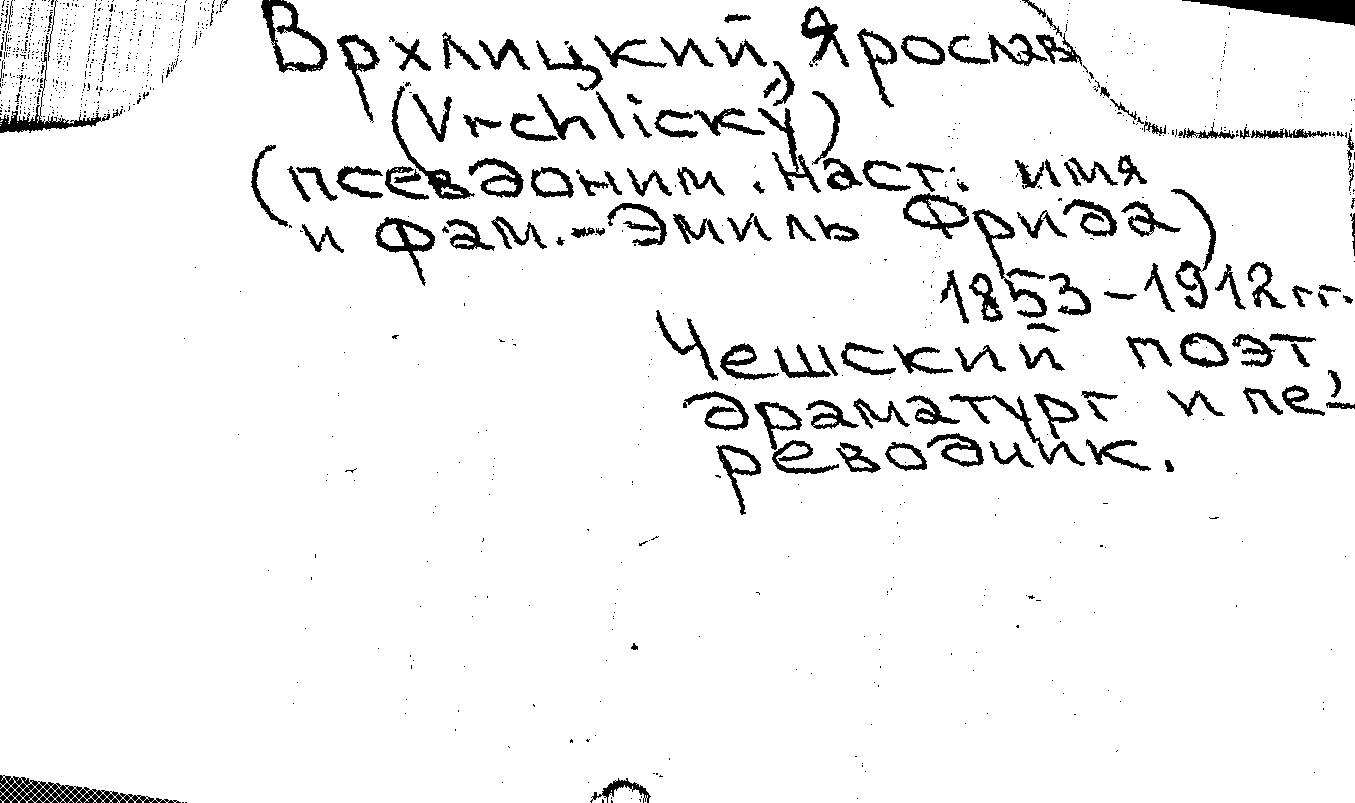 Врхлицкий, Ярослав
(Vrchlický)
(псевдоним. Наст. имя
и фам. - Эмиль Фрида)
1853-1912 гг.
Чешский поэт,
драматург и пе-
реводчик.